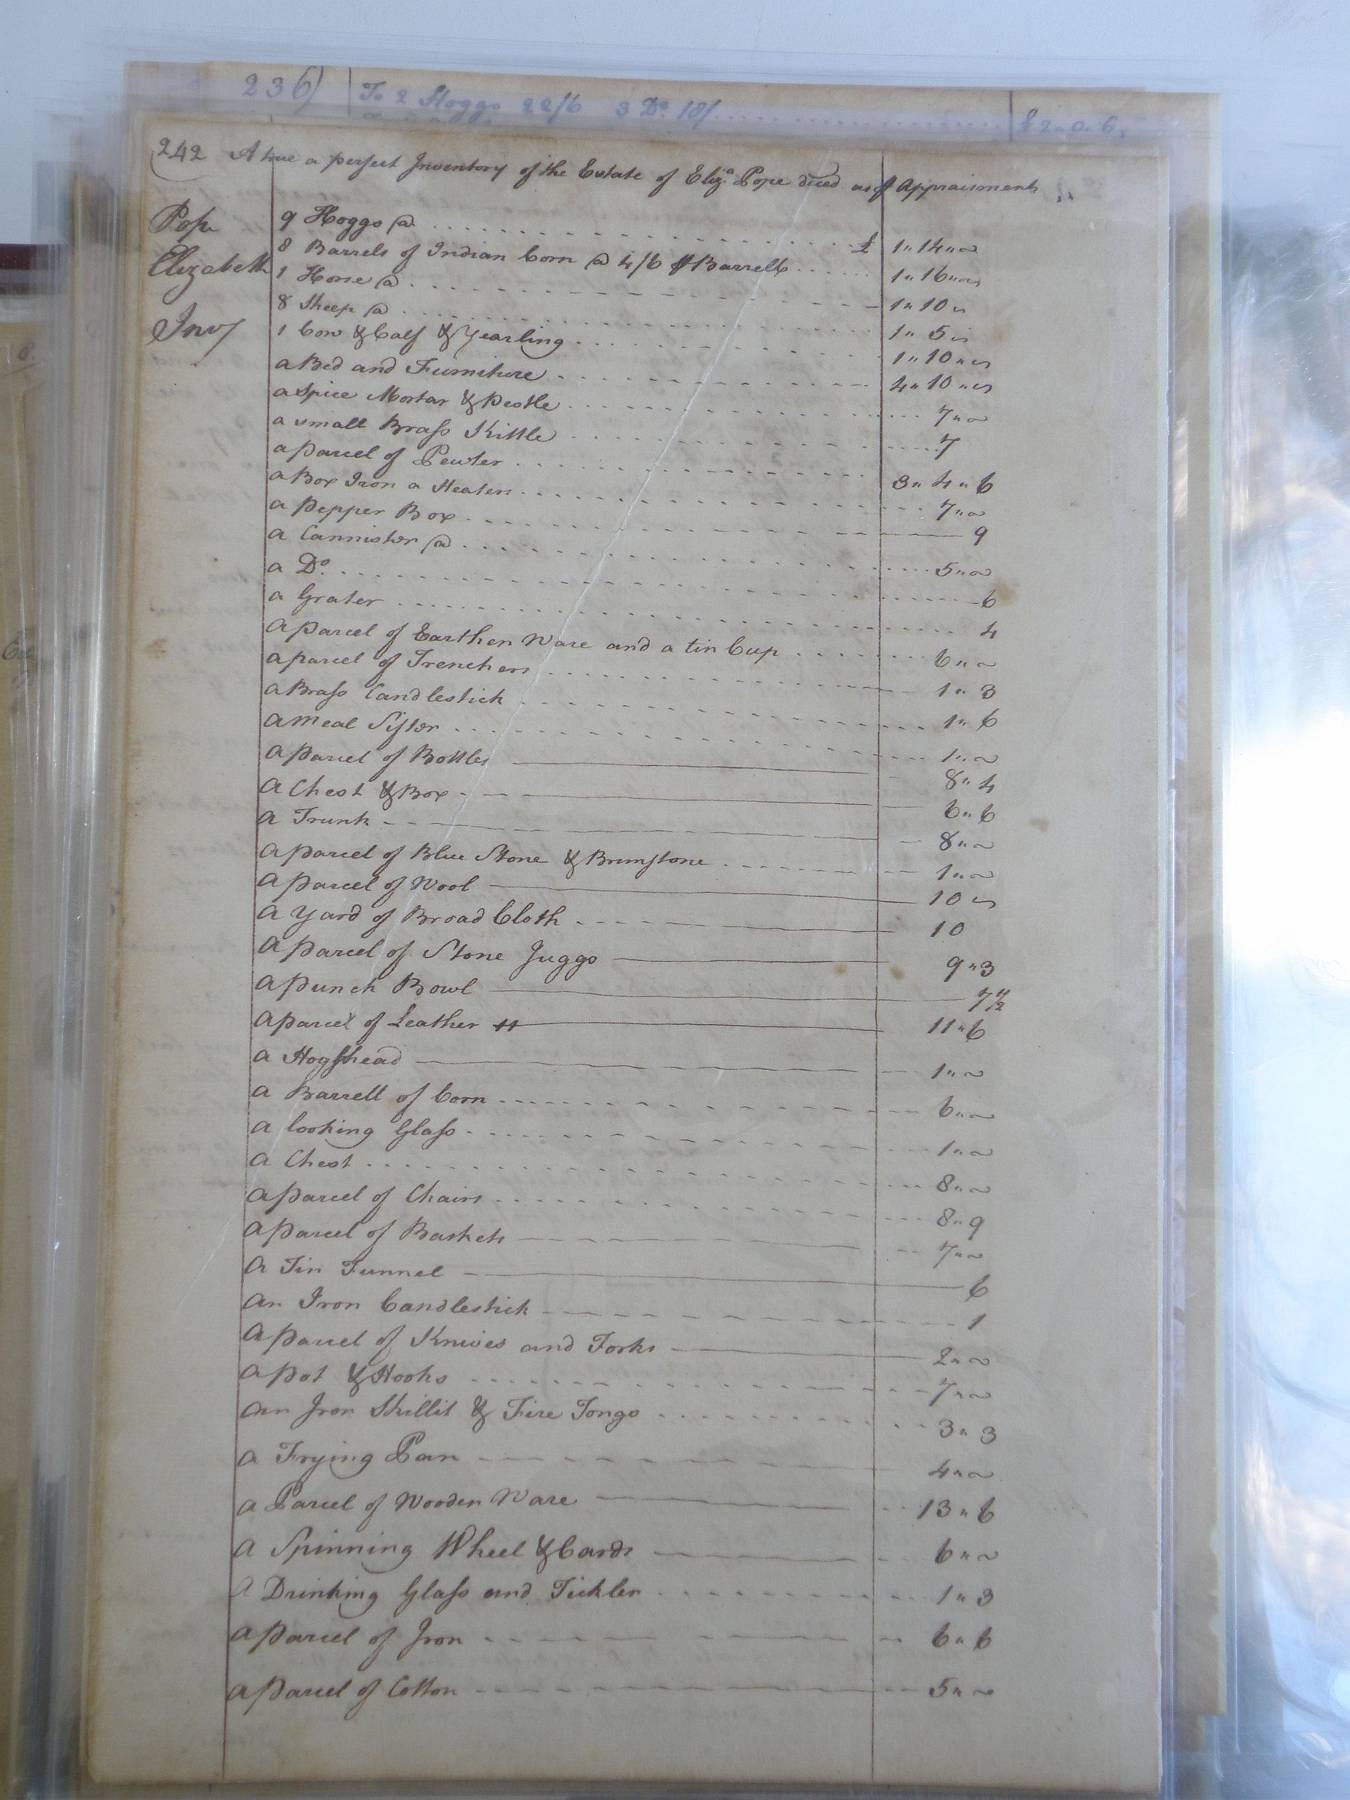 236) To 2 Hoggs 22/6 3 Do. 18/ £ 2 . 0 . 6 .
242 A true a perfect Inventory of the Estate of Eliza. Pope deced as ⅌ Appraisment
Pope
Elizabeth
Invy
9 Hoggs @ £ 1 " 14 " ~
8 Barrels of Indian Corn @ 4/6 ⅌ Barrell 1 " 16 " ~
1 Horse @ 1 " 10 ~
8 Sheep @ 1 " 5 ~
1 Cow & Calf & Yearling 1 " 10 " ~
a Bed and Furniture 4 " 10 " ~
a Spice Mortar & Pestle 7 " ~
a small Brass Kittle 7
a parcel of Pewter 3 " 4 " 6
a Box Iron a Heaters 7 " ~
a Pepper Box 9
a Cannister @ 5 " ~
a Do. 6
a Grater 4
a parcel of Earthen Ware and a tin Cup 6 " ~
a parcel of Trenchers 1 " 3
a Brass Candlestick 1 " 6
a meal Sifter 1 " ~
a parcel of Bottles 8 " 4
a Chest & Box 6 " 6
a Trunk 8 " ~
a parcel of Blue Stone & Brimstone 1 " ~
a parcel of Wool 10 ~
a yard of Broad Cloth 10
a parcel of Stone Juggs 9 " 3
a punch Bowl 7 1/2
a parcel of Leather 11 " 6
a Hogshead 1 " ~
a Barrell of Corn 6 " ~
a looking Glass 1 " ~
a Chest 8 " ~
a parcel of Chairs 8 " 9
a parcel of Baskets 7 " ~
a Tin Tunnel 6
an Iron Candlestick 1
a parcel of Knives and Forks 2 " ~
a pot & Hooks 7 " ~
an Iron Skillit & Fire Tongs 3 " 3
a Frying Pan 4 " ~
a Parcel of Wooden Ware 13 " 6
a Spinning Wheel & Cards 6 " ~
a Drinking Glass and Tickler 1 " 3
a parcel of Iron 6 " 6
a parcel of Cotton 5 " ~